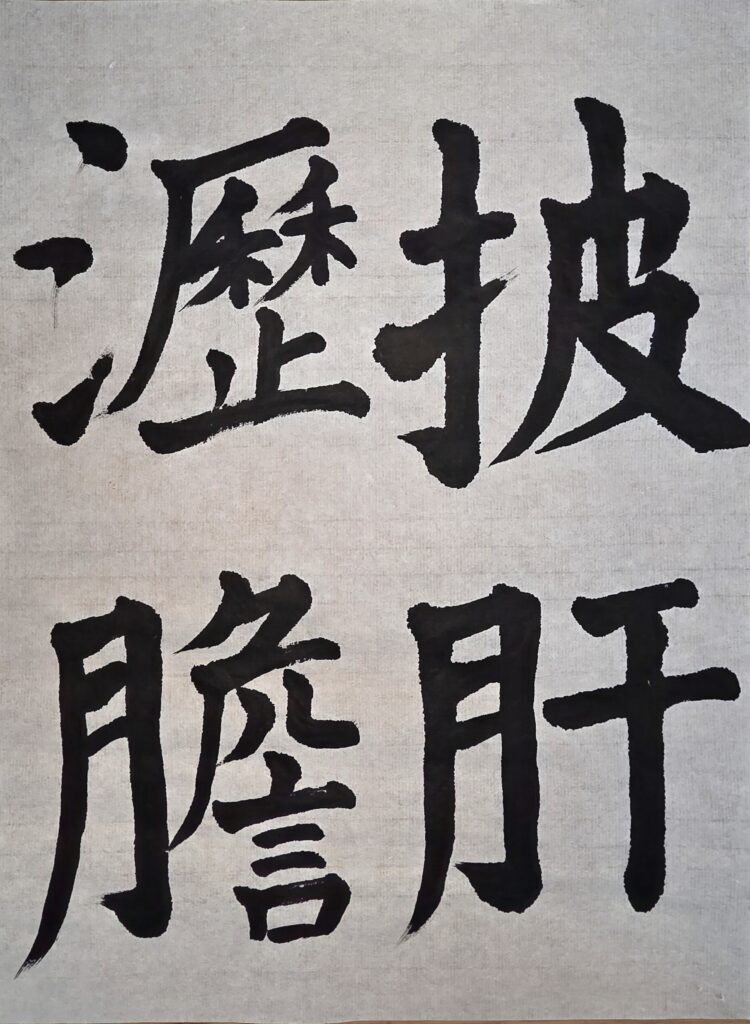 披肝
瀝膽